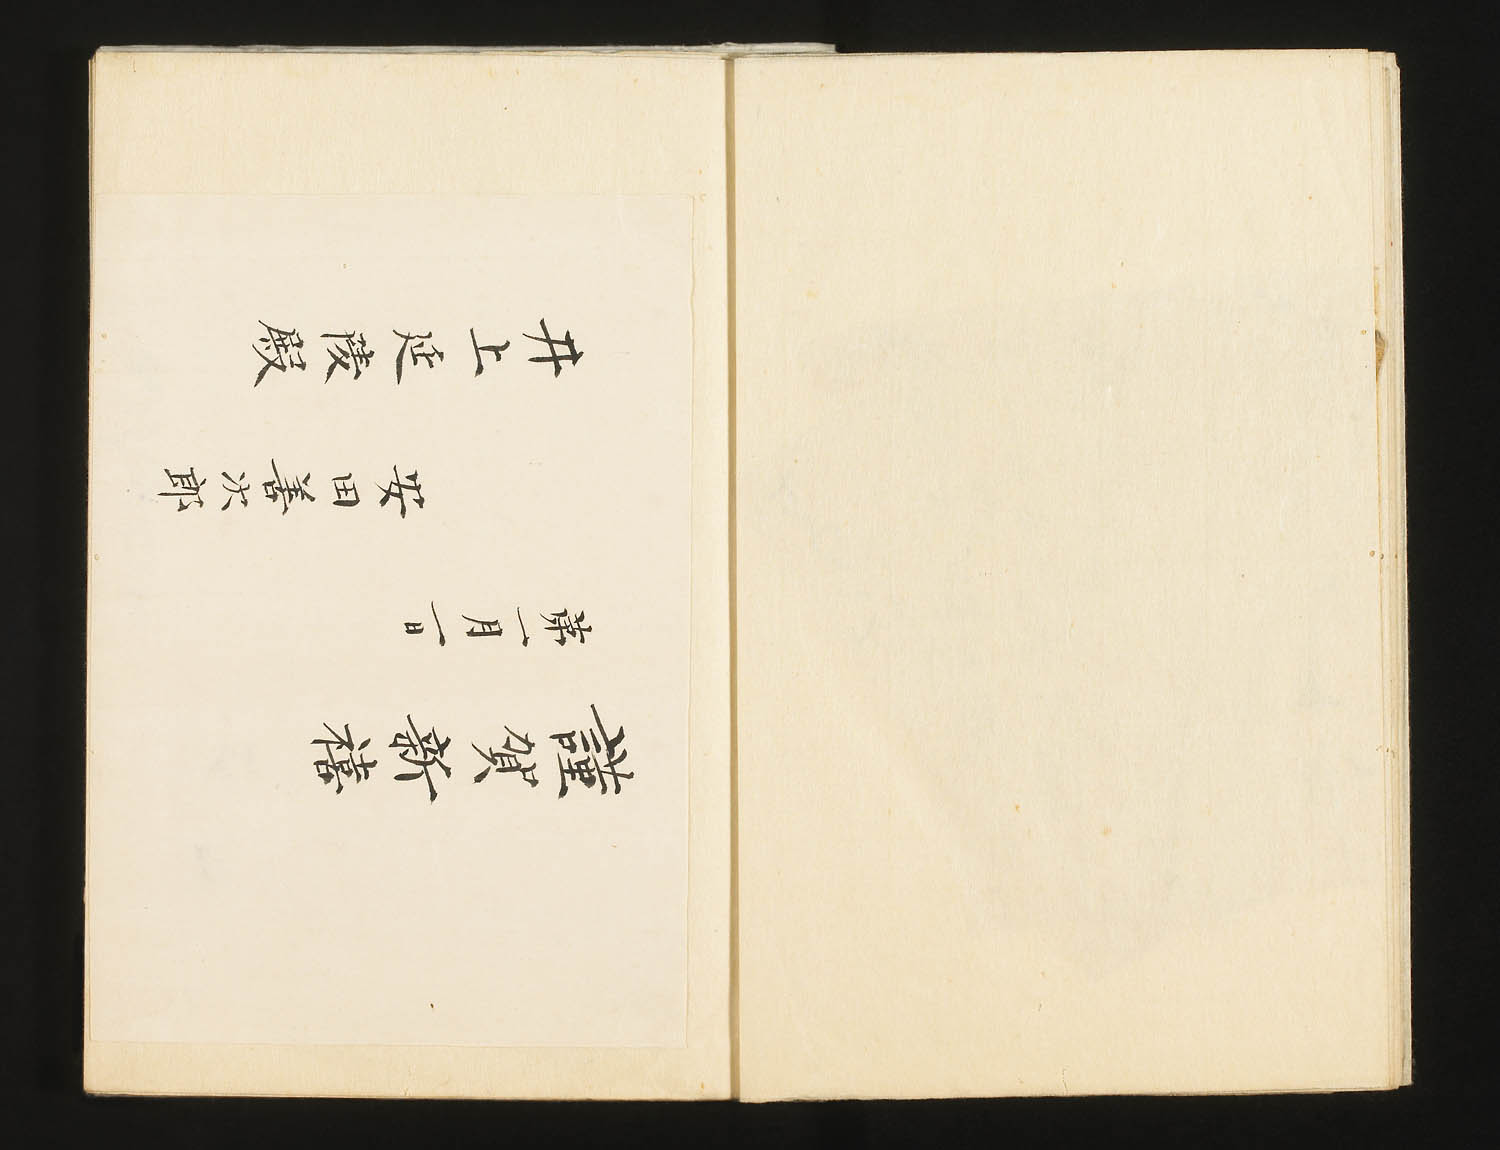 謹賀新禧
第一月一日
安田善次郎
井上延陵殿